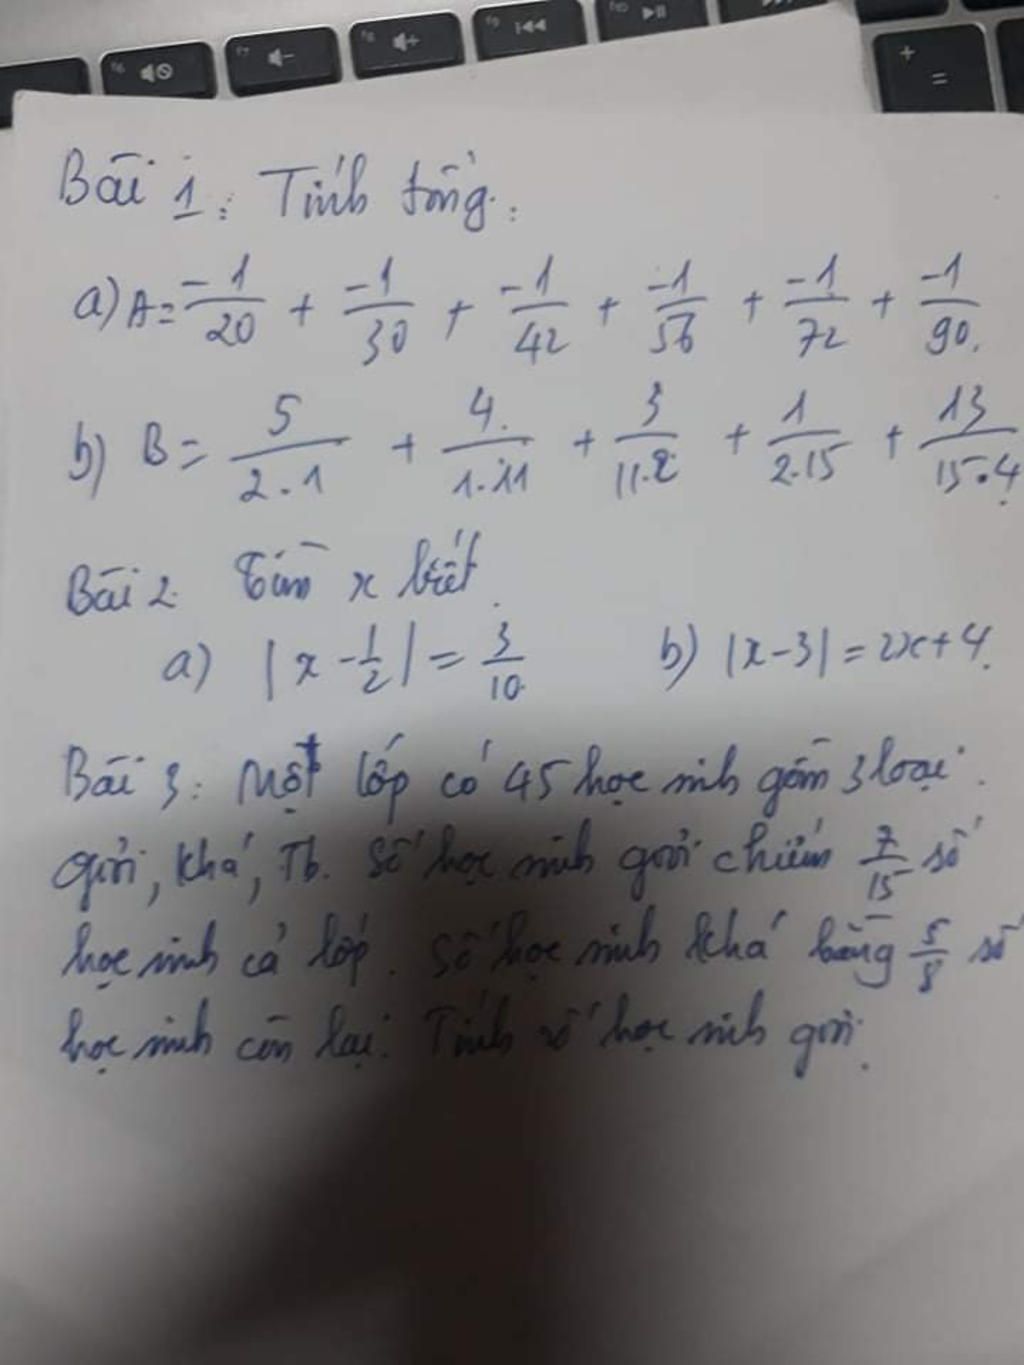 Bài 1: Tính tổng:
a) A = -1/20 + -1/30 + -1/42 + -1/56 + -1/72 + -1/90.
b) B = 5/2.1 + 4/1.11 + 3/11.2 + 1/2.15 + 13/15.4
Bài 2. Tìm x biết.
a) |x - 1/2| = 3/10 b) |x-3| = 2x+4.
Bài 3: Một lớp có 45 học sinh gồm 3 loại
giỏi, khá, Tb. Số học sinh giỏi chiếm 7/15 số
học sinh cả lớp. Số học sinh khá bằng 5/8 số
học sinh còn lại. Tính số học sinh giỏi.